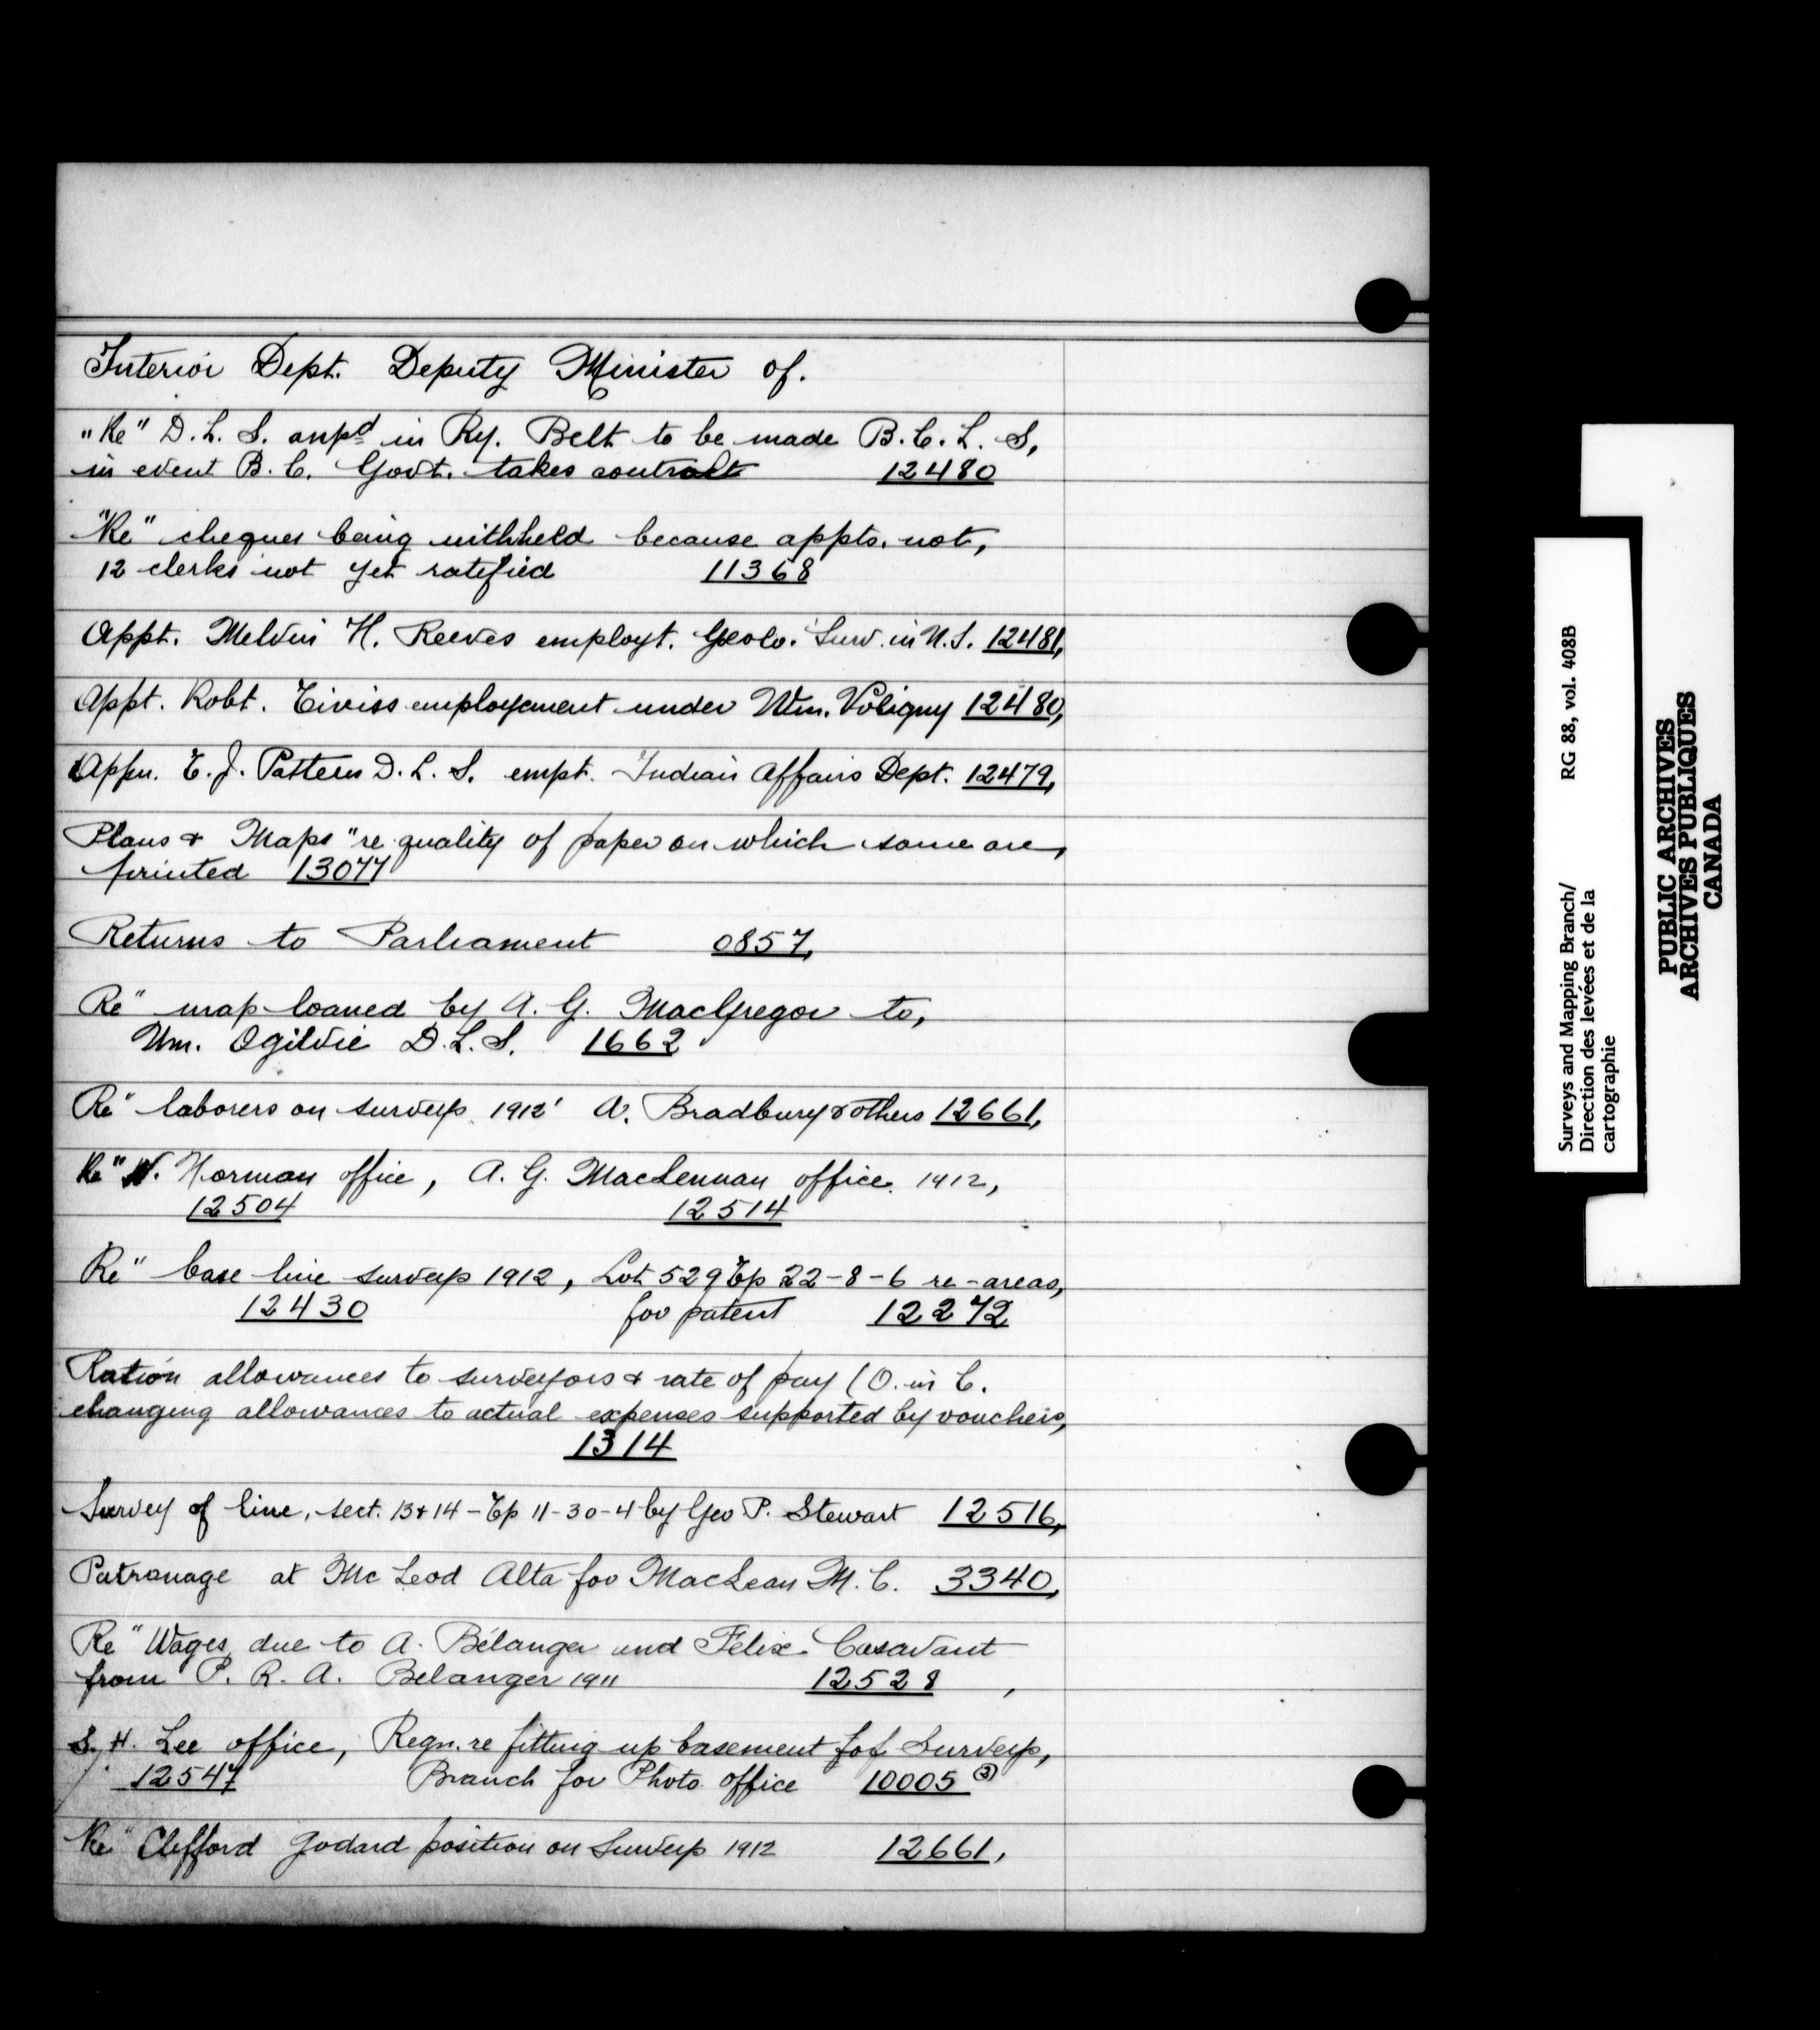 Interior Dept. Deputy Minister of.
"Re" D. L. S. anpd in Ry. Belt to be made B. C. L. S,
in event B. C. Govt. takes control 12480
"Re" cheques being withheld because appts. not,
12 clerks not yet ratified 11368
Appt. Melvin H. Reeves employt. Geolo. Surv. in N.S. 12481,
Appt. Robt. employement under Wm. 12480,
E. J. D. L. S. empt. Indian Affairs Dept. 12479,
Plans & Maps "re quality of paper on which some are,
printed 13077
Returns to Parliament 0857,
Re" map loaned by A. G. MacGregor to,
Wm. Ogilvie D. L. S. 1662
Re" laborers on surveys 1912' A. Bradbury & others 12661,
Re" N. Horman office, A. G. MacLennan office 1912,
12504 12514
Re" base line surveys 1912, Lot 529 Tp 22-8-6 re-areas,
12430 for patent 12272
Ration allowances to surveyors & rate of pay (O. in C.
changing allowances to actual expenses supported by vouchers,
1314
Survey of line, sect. 13 & 14 - Tp 11-30-4 by Geo P. Stewart 12516,
Patronage at McLeod Alta for MacLean M. C. 3340,
Re" Wages due to A. Bélanger and Felix Casavant
from P. R. A. Belanger 1911 12528,
S. H. Lee office, Reqn. re fitting up basement for Surveys,
12547 Branch for Photo office 10005 (3)
Re" Clifford Godard position on Surveys 1912 12661,
Surveys and Mapping Branch/ RG 88, vol. 408B
Direction des levées et de la
cartographie
PUBLIC ARCHIVES
ARCHIVES PUBLIQUES
CANADA